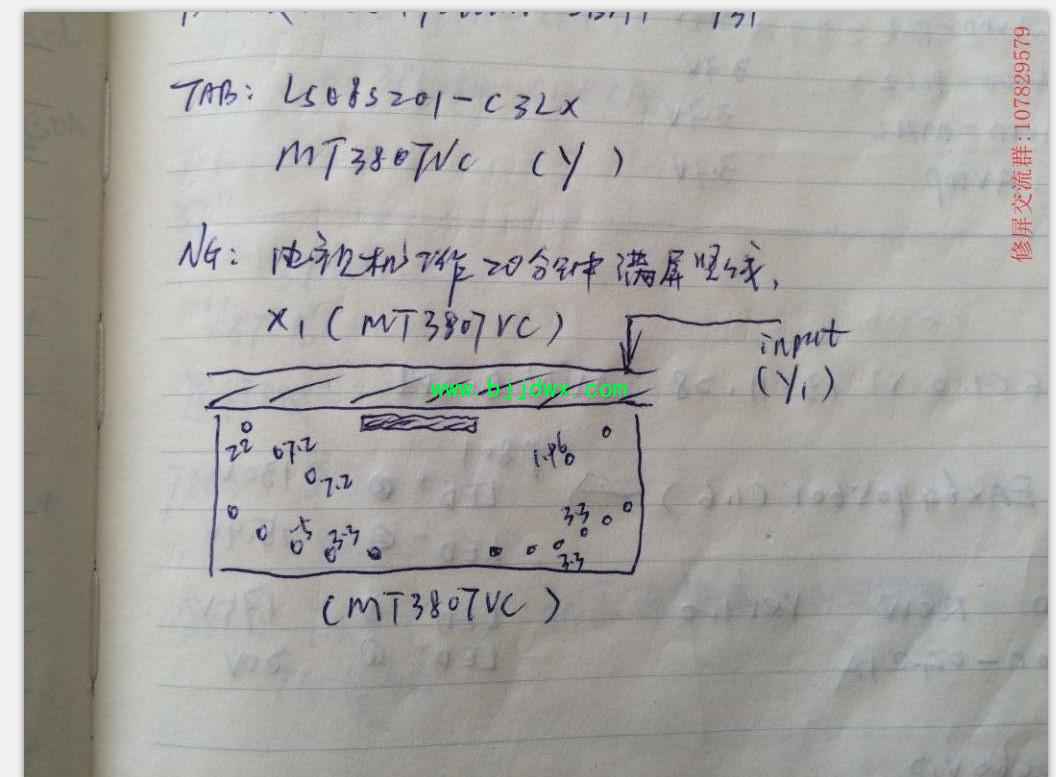 TAB: LS08S201-C3LX
MT3807VC (Y)
NG: 电视机工作20分钟满屏竖线,
X1 (MT3807VC)
input
(Y1)
www.bjjdwx.com
22 07.2 1.96
07.2
-5 3.3 3.3
3.3
(MT3807VC)
修屏交流群:107829579